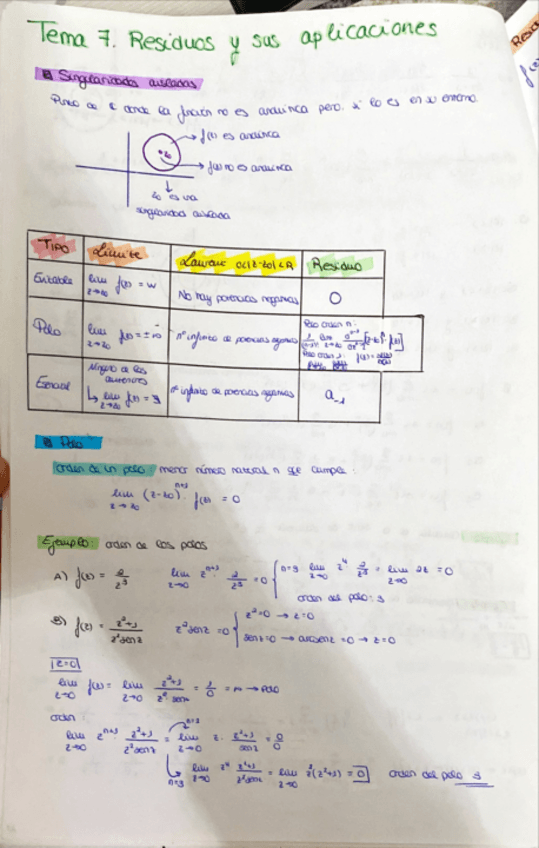 Tema 7. Residuos y sus aplicaciones
Singularidades aisladas
Punto de donde la función no es analítica pero si lo es en su entorno.
f(z) es analítica
z0
f(z) no es analítica
z0 es una
singularidad aislada
TIPO Límite Laurent 0<|z-z0|<R Residuo
Evitable lim z→z0 f(z) = w No hay potencias negativas 0
Polo lim z→z0 f(z) = ±∞ nº infinito de potencias negativas Polo orden n:
Esencial Ninguno de los anteriores nº infinito de potencias negativas a-1
↳ lim z→z0 f(z) = ∄
Polo
Orden de un polo: menor número natural n que cumple:
lim z→z0 (z-z0)^n+1 · f(z) = 0
Ejemplo: orden de los polos
A) f(z) = 2/z^3 lim z→0 z^n+1 · 2/z^3 = 0 { n=3 lim z→0 z^4 2/z^3 = lim z→0 2z = 0
orden del polo: 3
B) f(z) = z^2+1/z^2 sen z z^2 sen z = 0 { z^2=0 → z=0
sen z=0 → arcsen z = 0 → z=0
z=0
lim z→0 f(z) = lim z→0 z^2+1/z^2 sen z = 1/0 = ∞ → polo
orden:
lim z→0 z^n+1 · z^2+1/z^2 sen z = n=2 lim z→0 z · z^2+1/sen z = 0/0
n=3 lim z→0 z^4 z^2+1/z^2 sen z = lim z→0 z(z^2+1) = 0 orden del polo 3